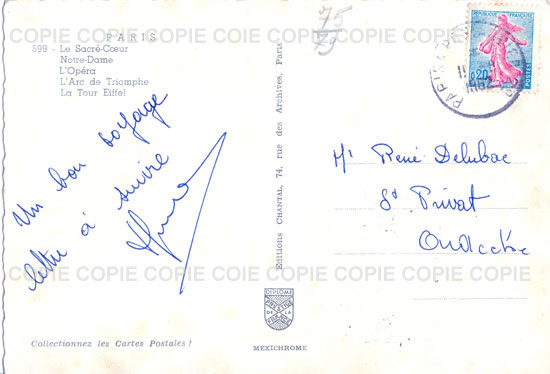 PARIS
599 - Le Sacré-Cœur
Notre-Dame
L'Opéra
L'Arc de Triomphe
La Tour Eiffel
Un bon voyage
lettre à suivre
Collectionnez les Cartes Postales !
Editions CHANTAL, 74, rue des Archives, Paris
DIPLOME
PRESTIGE
DE LA
MEXICHROME
75
REPUBLIQUE FRANÇAISE
0,20
POSTES
PARIS
1962
Mr René Delubac
St Privat
COPIE COPIE COPIE COPIE COPIE COPIE COPIE
COPIE COPIE COPIE COPIE COPIE COPIE COPIE
COPIE COPIE COPIE COIE COPIE COPIE COPIE